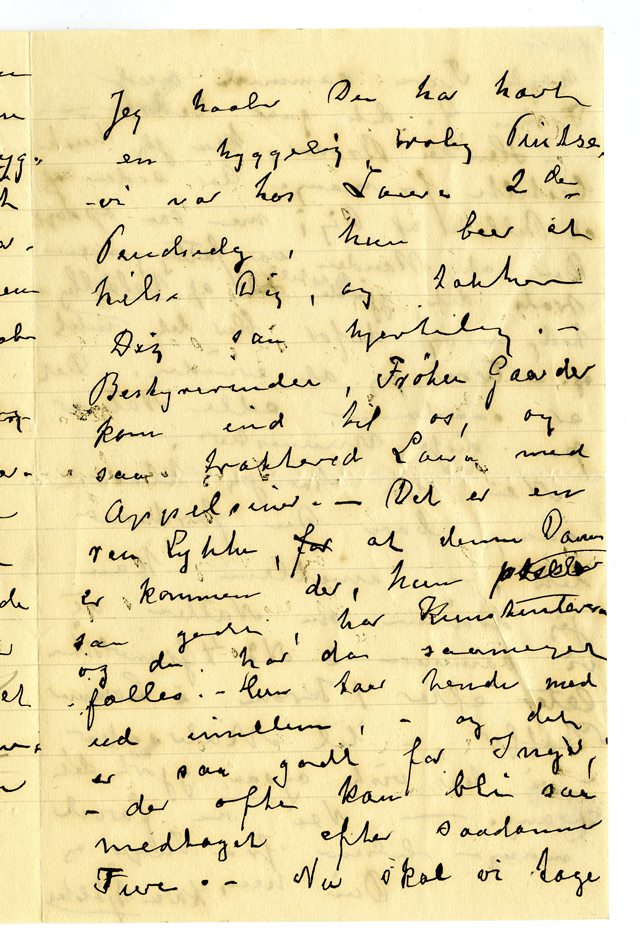 Jeg haaber Du har havt
en hyggelig, rolig Pintse,
- vi var hos Laura 2den
Pindsedag, hun beer at
hilse Dig, og takker
Dig saa hjertelig. -
Bestyrerinden, Frøken Gaarder
kom ind til os, og
saa trakterede Laura med
Appelsiner. - Det er en
ren Lykke, for at denne Dame
er kommen der, hun
saa godt, har Kunstinteresse
og de har da saameget
fælles. - Hun taer hende med
ud imellem, - og det
er saa godt for Inger,
- der ofte kan bli saa
medtaget efter saadanne
Ture. - Nu skal vi tage